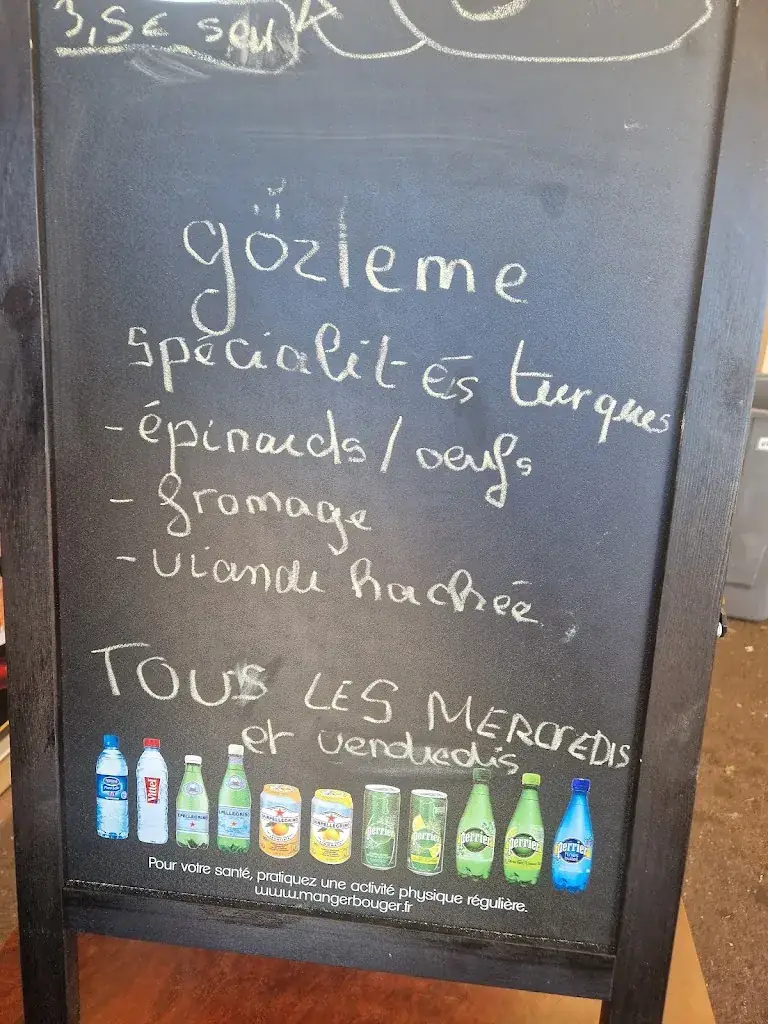 3,5€ seul
gözleme
spécialités turques
- épinards / oeufs
- fromage
- viande hachée
TOUS LES MERCREDIS
et vendredis
Vittel
S.PELLEGRINO
S.PELLEGRINO
SANPELLEGRINO
SANPELLEGRINO
Perrier
Perrier
Perrier
Perrier
Perrier
Pour votre santé, pratiquez une activité physique régulière.
www.mangerbouger.fr